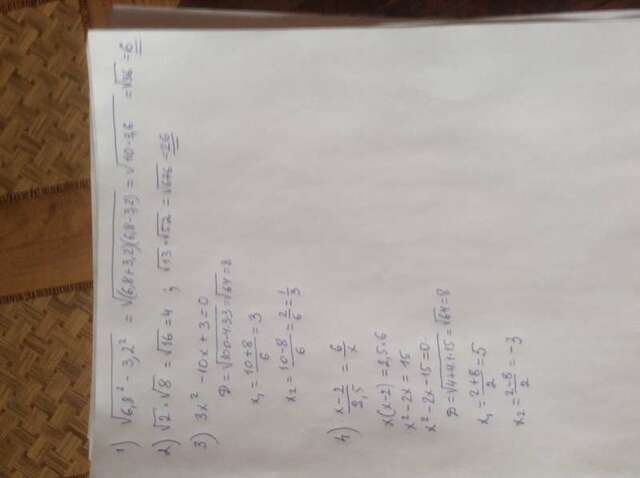 1) √6,8² - 3,2² = √(6,8+3,2)(6,8-3,2) = √10·3,6 = √36 = 6
2) √2 · √8 = √16 = 4 ; √13 · √52 = √676 = 26
3) 3x² - 10x + 3 = 0
D = √100-4·3·3 = √64 = 8
x₁ = (10+8)/6 = 3
x₂ = (10-8)/6 = 2/6 = 1/3
4) (x-2)/2,5 = 6/x
x(x-2) = 2,5·6
x² - 2x = 15
x² - 2x - 15 = 0
D = √4+4·1·15 = √64 = 8
x₁ = (2+8)/2 = 5
x₂ = (2-8)/2 = -3